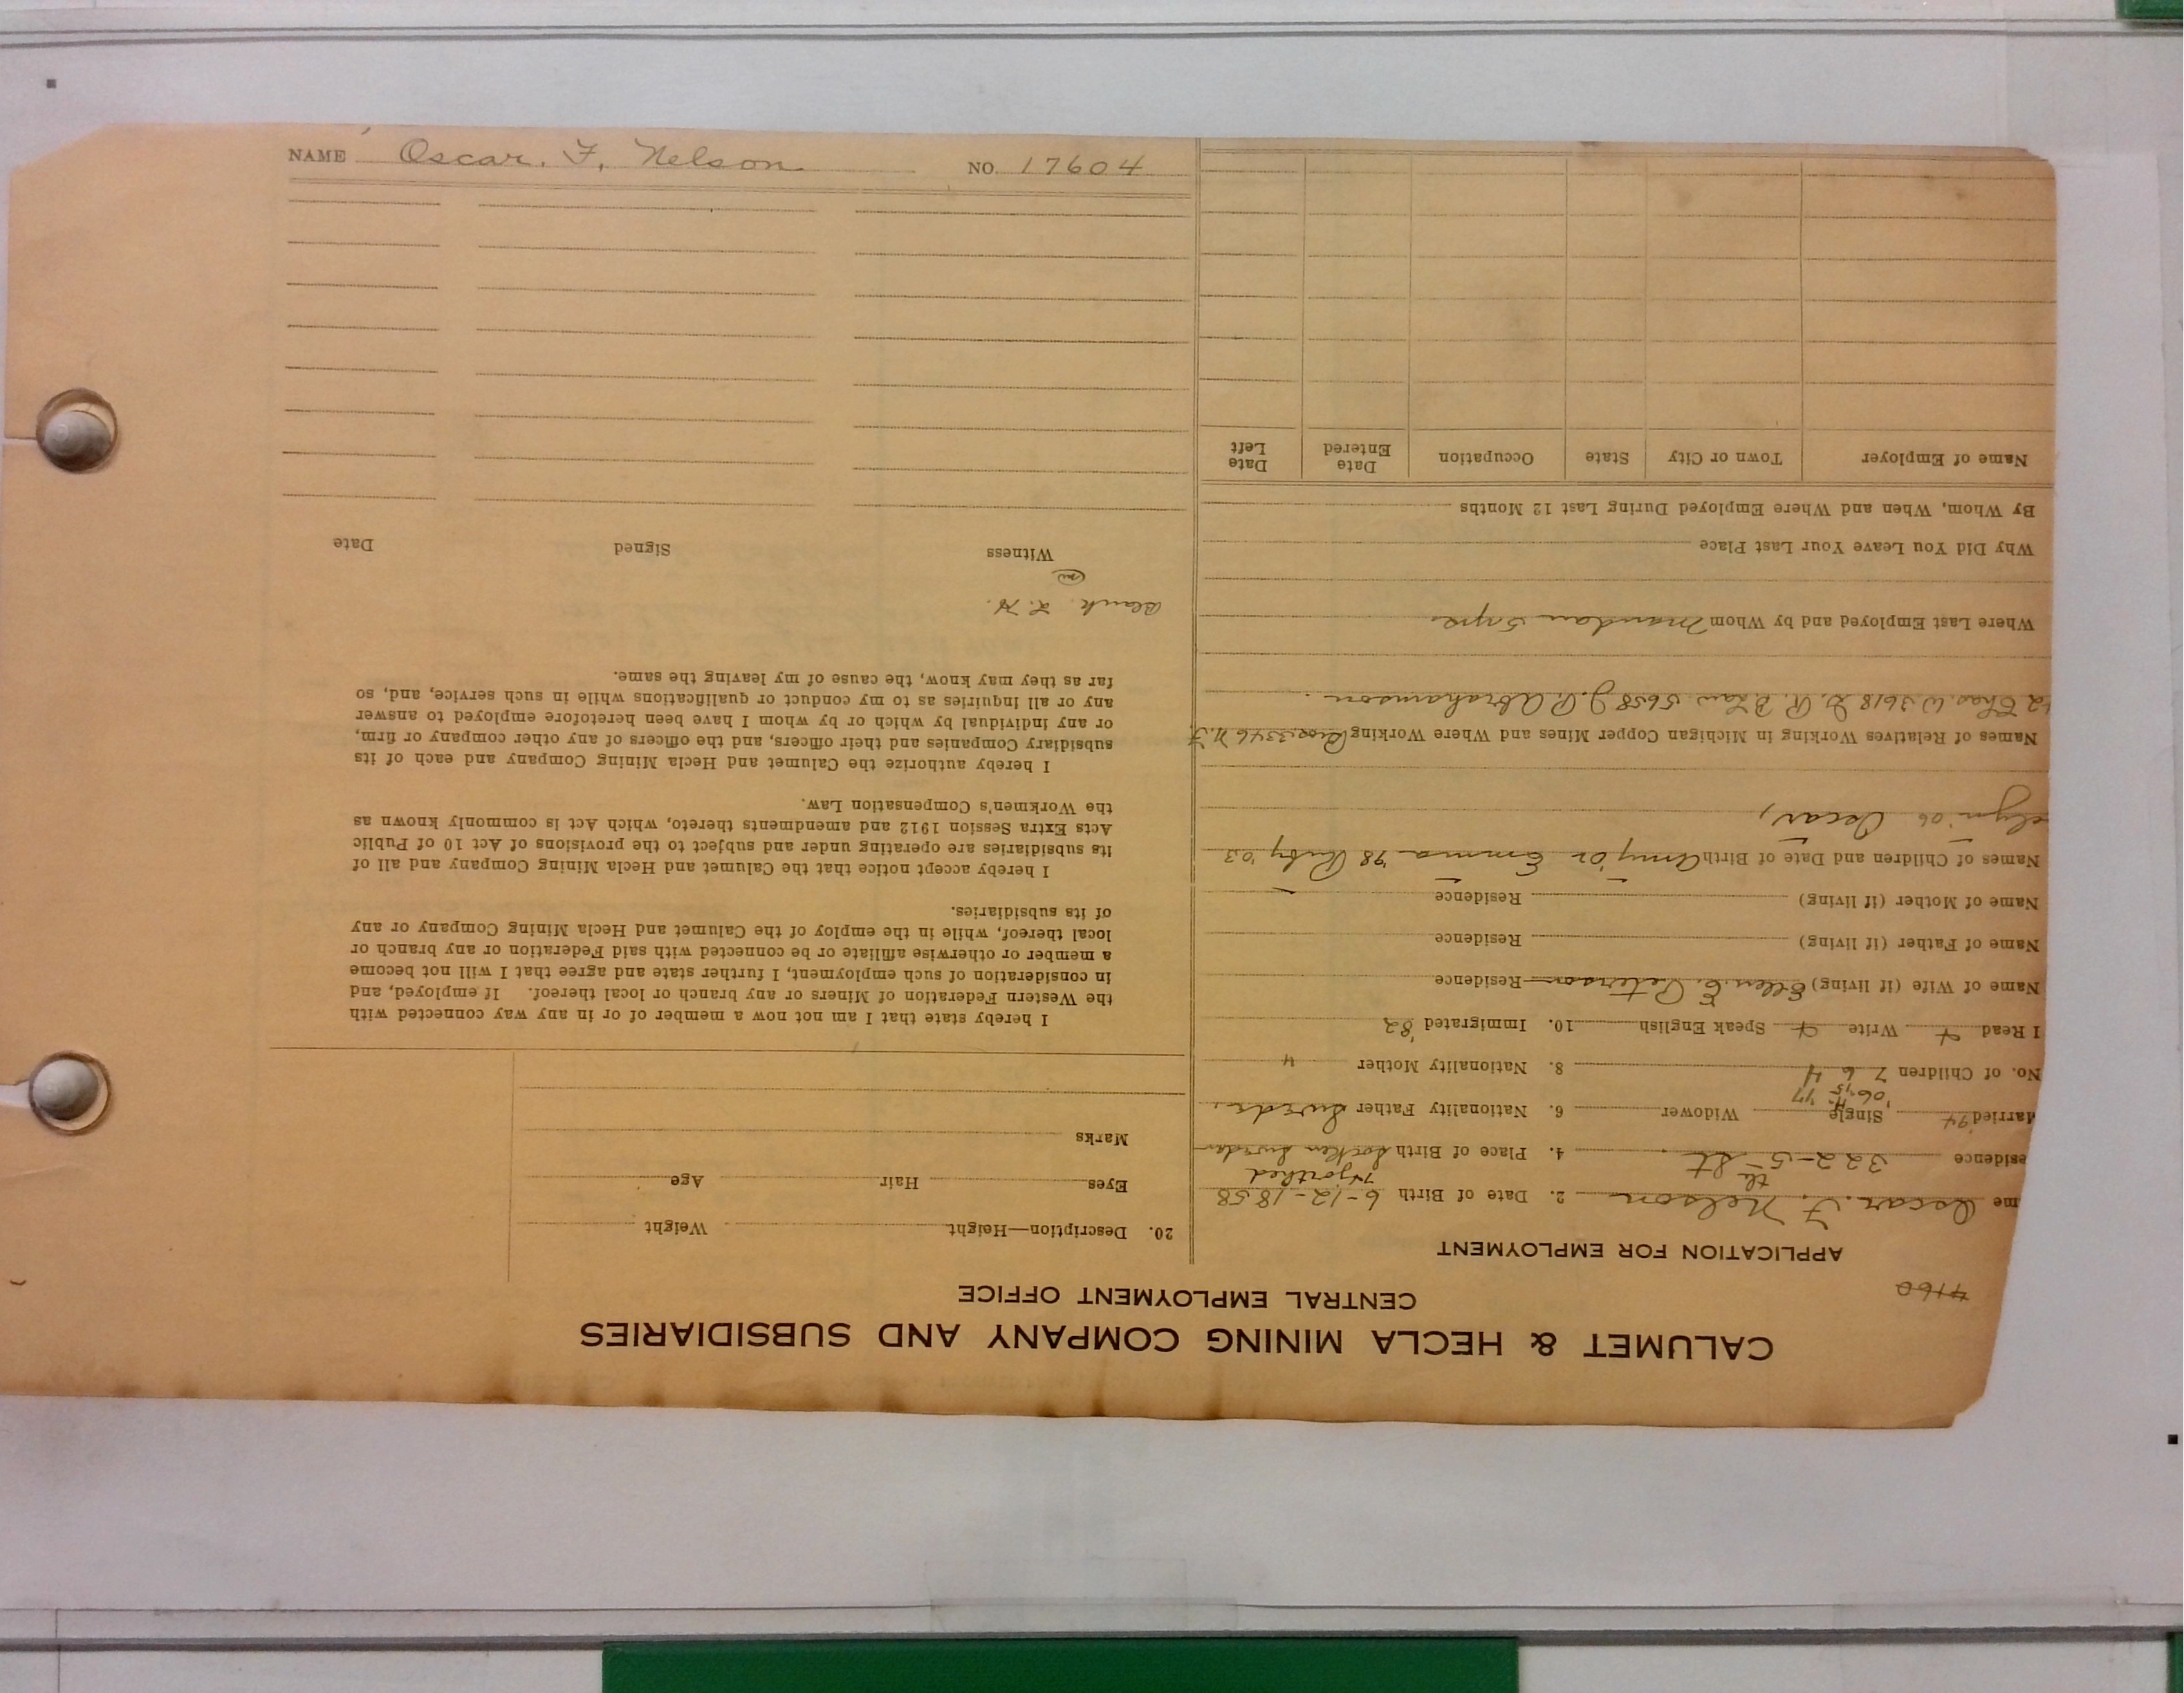 CALUMET & HECLA MINING COMPANY AND SUBSIDIARIES
CENTRAL EMPLOYMENT OFFICE
4160
APPLICATION FOR EMPLOYMENT
me Oscar. F. Nelson 2. Date of Birth 6-12-1858
esidence 322-5th St. 4. Place of Birth Sweden
Married '94 Single Widower 6. Nationality Father Swede.
'06 '15 '17
No. of Children 7 6 4 8. Nationality Mother "
I Read Write Speak English 10. Immigrated '82
Name of Wife (if living) Ellen E. Peterson Residence
Name of Father (if living) Residence
Name of Mother (if living) Residence
Names of Children and Date of Birth Emma '98 Ruby '03
'06 Oscar,
Names of Relatives Working in Michigan Copper Mines and Where Working 3346 N.F.
Chas. W. 3618 Law 5658 J. P. Abrahamson
Where Last Employed and by Whom Mandan
Why Did You Leave Your Last Place
By Whom, When and Where Employed During Last 12 Months
Name of Employer Town or City State Occupation Date Entered Date Left
20. Description—Height Weight
Eyes Hair Age
Marks
I hereby state that I am not now a member of or in any way connected with
the Western Federation of Miners or any branch or local thereof. If employed, and
in consideration of such employment, I further state and agree that I will not become
a member or otherwise affiliate or be connected with said Federation or any branch or
local thereof, while in the employ of the Calumet and Hecla Mining Company or any
of its subsidiaries.
I hereby accept notice that the Calumet and Hecla Mining Company and all of
its subsidiaries are operating under and subject to the provisions of Act 10 of Public
Acts Extra Session 1912 and amendments thereto, which Act is commonly known as
the Workmen's Compensation Law.
I hereby authorize the Calumet and Hecla Mining Company and each of its
subsidiary Companies and their officers, and the officers of any other company or firm,
or any individual by which or by whom I have been heretofore employed to answer
any or all inquiries as to my conduct or qualifications while in such service, and, so
far as they may know, the cause of my leaving the same.
Blank
Witness Signed Date
NAME Oscar. F. Nelson NO. 17604